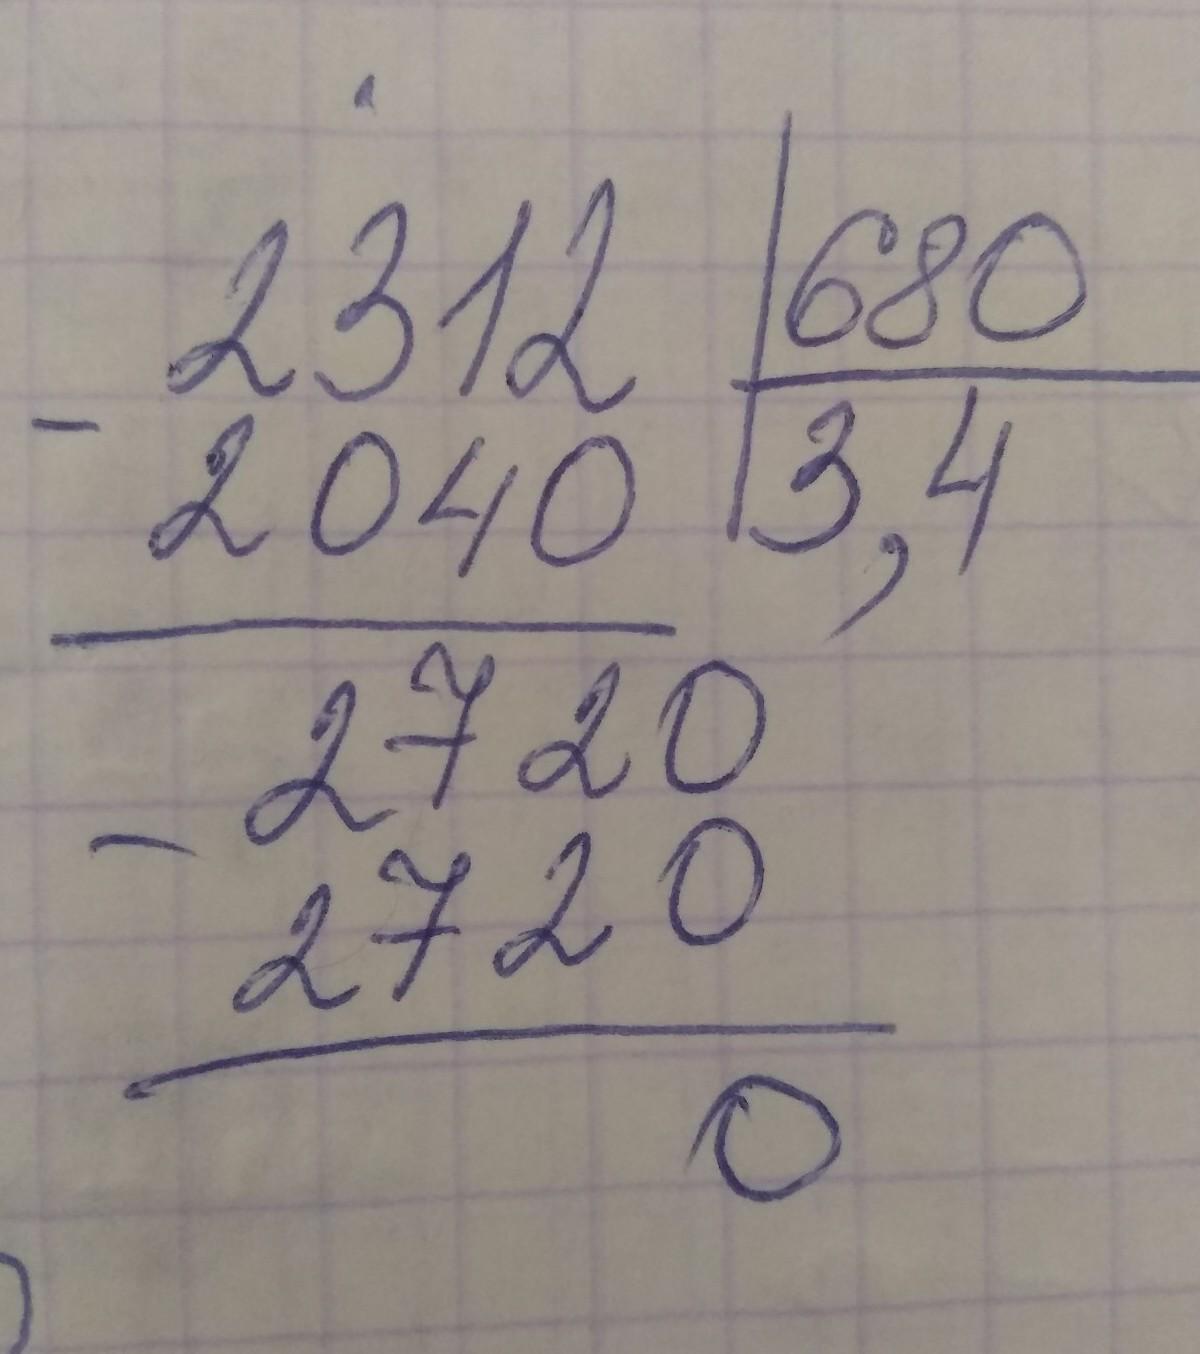 2312 680
- 2040 3,4
2720
- 2720
0